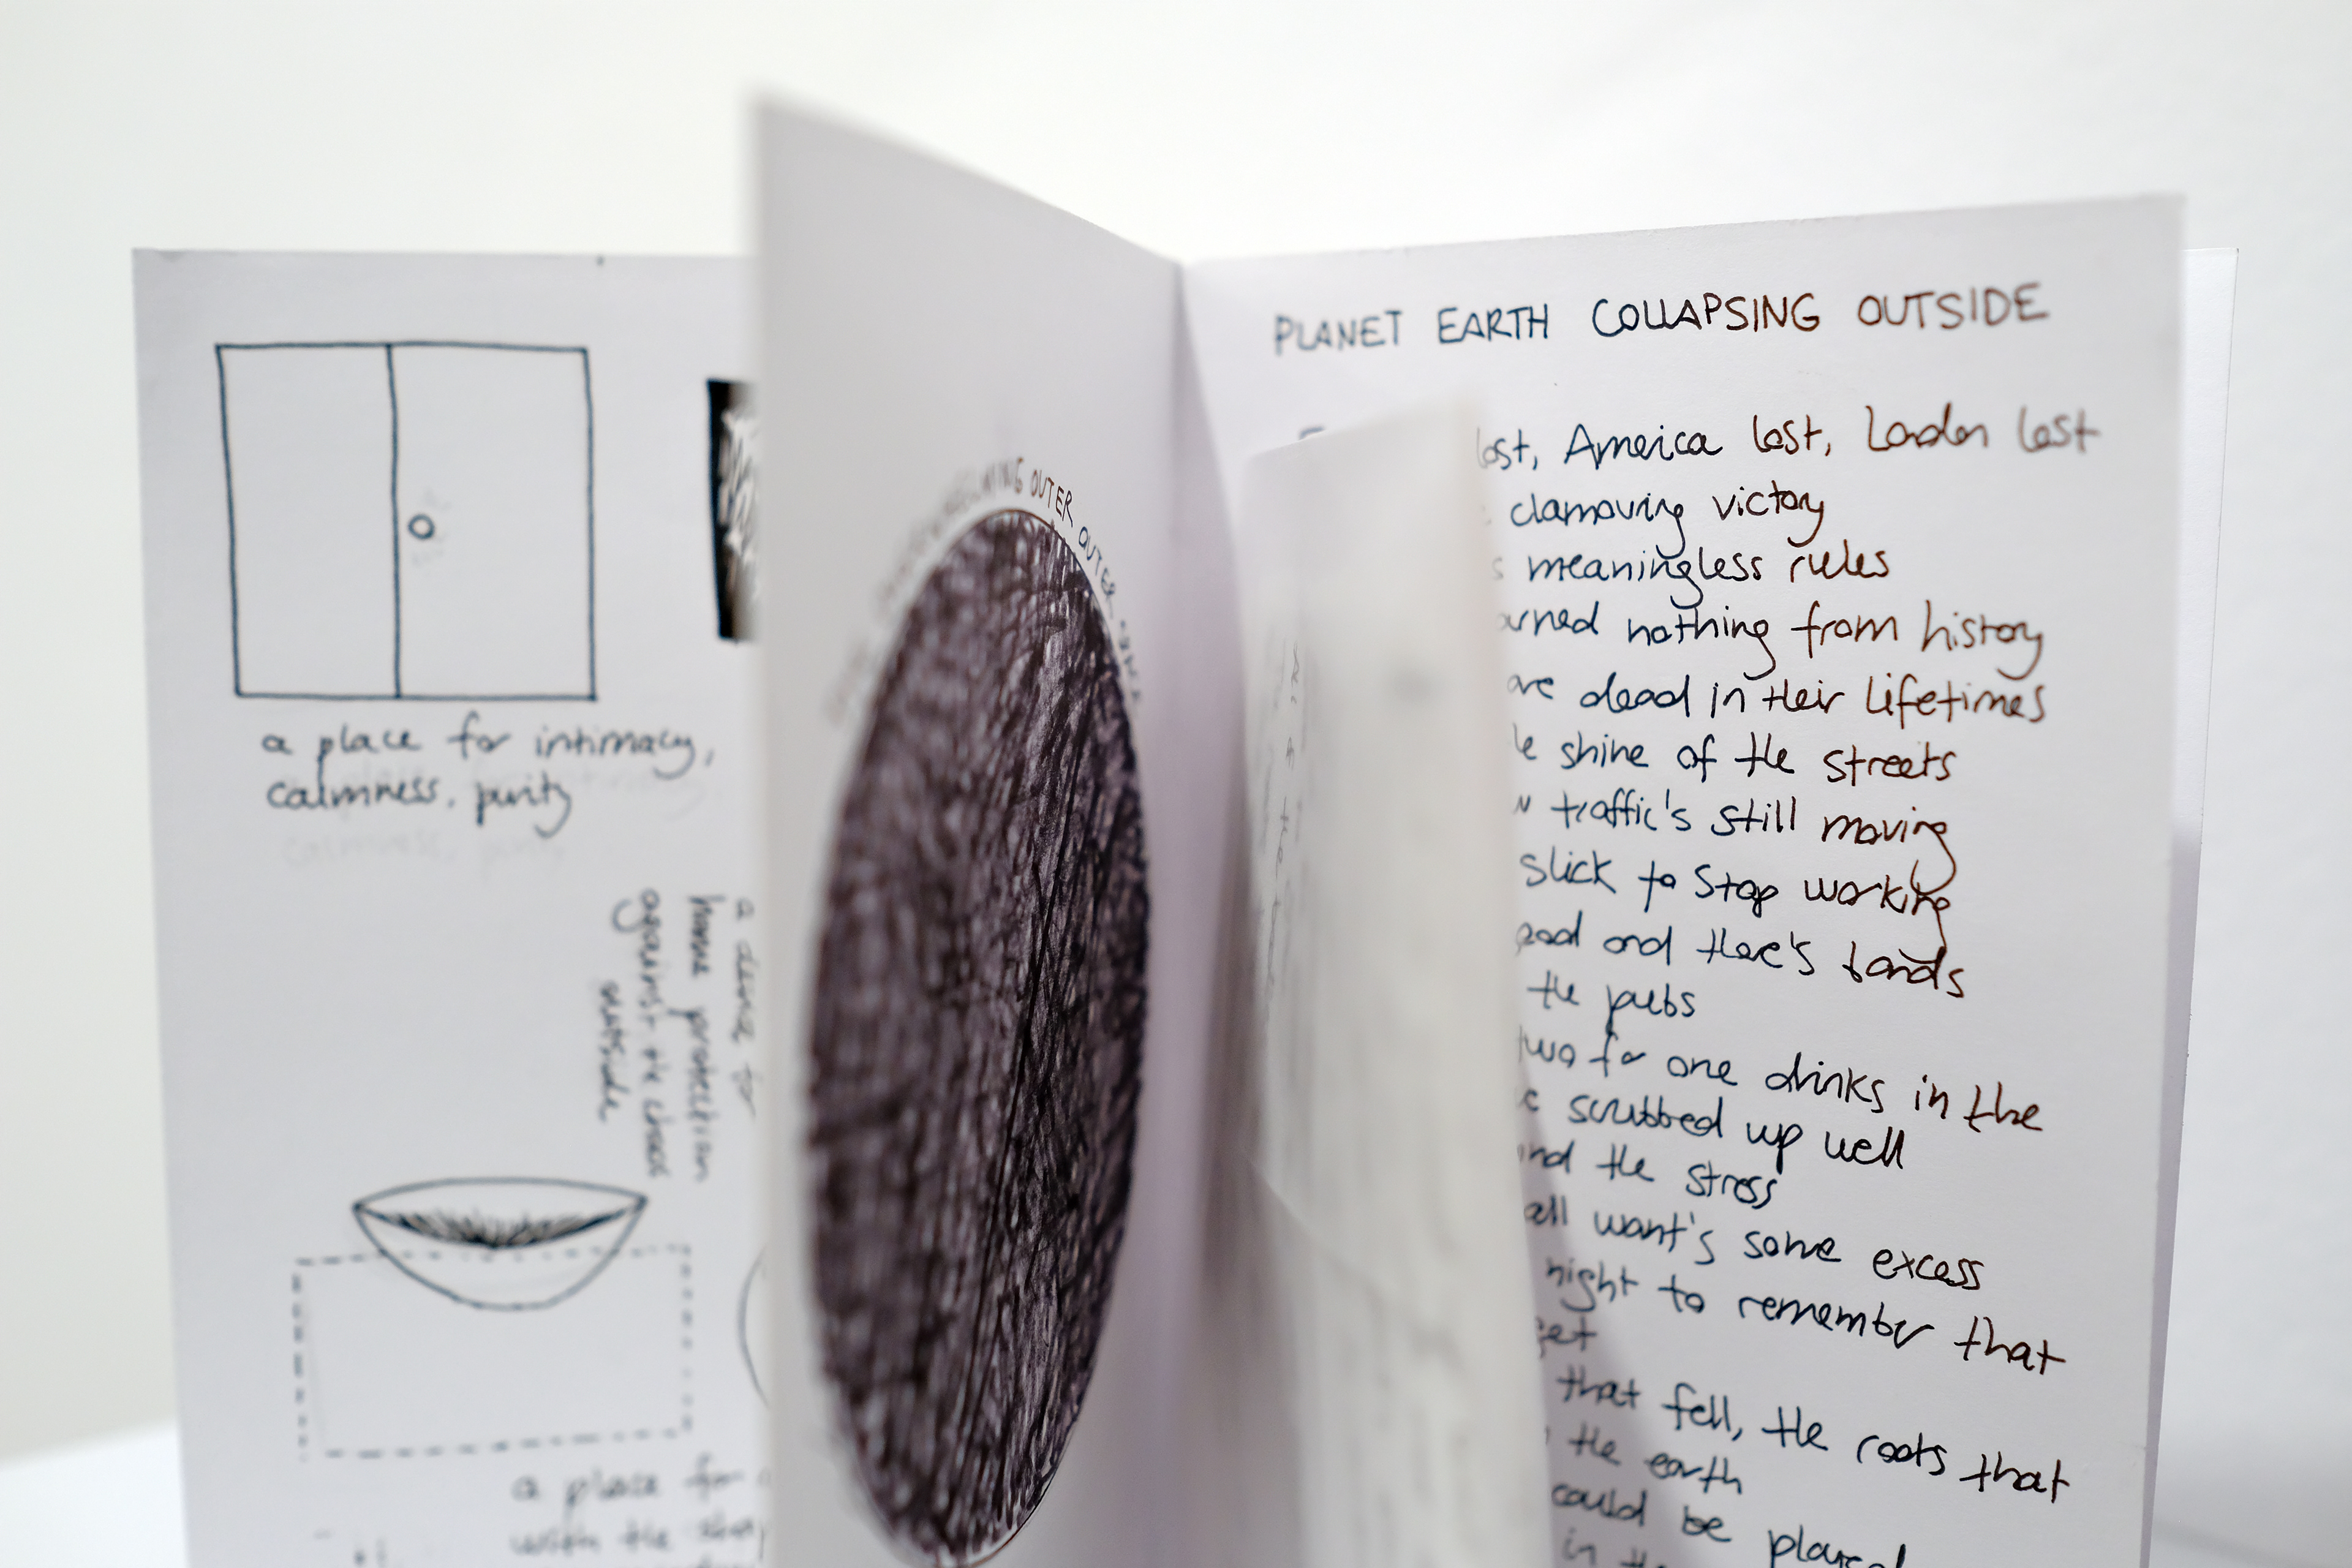 a place for intimacy,
calmness, purity
a device for
home protection
against the chaos
outside
a place for
with the
OUTER OUTER
PLANET EARTH COLLAPSING OUTSIDE
lost, America lost, London lost
clamouring victory
meaningless rules
nothing from history
are dead in their lifetimes
shine of the streets
traffic's still moving
slick to stop working
and there's bands
the pubs
two for one drinks in the
scrubbed up well
and the stress
all want's some excess
night to remember that
that fell, the roots that
the earth
could be
in